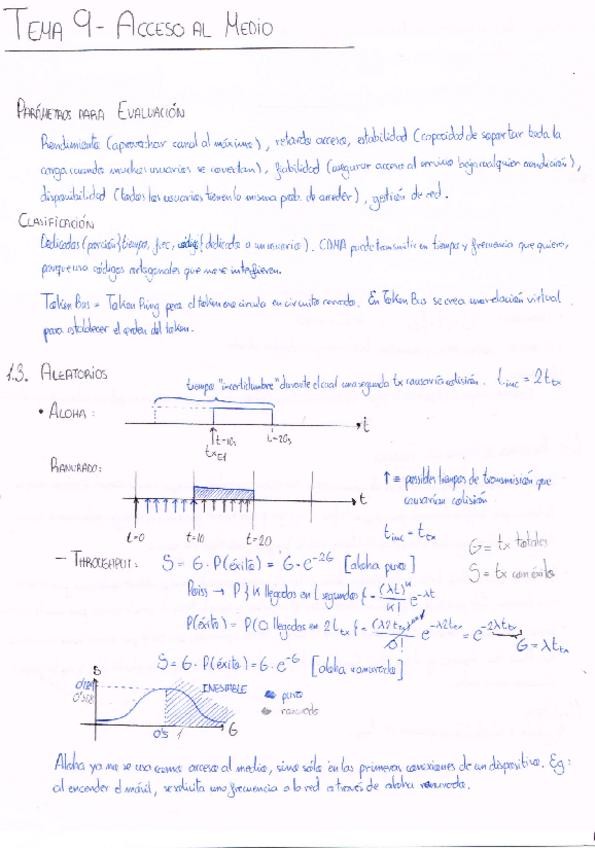 TEMA 9 - ACCESO AL MEDIO
PARÁMETROS PARA EVALUACIÓN
Rendimiento (aprovechar canal al máximo), retardo acceso, estabilidad (capacidad de soportar toda la
carga cuando muchos usuarios se conectan), fiabilidad (asegurar acceso al servicio bajo cualquier condición),
disponibilidad (todos los usuarios tienen la misma prob. de acceder), gestión de red.
CLASIFICACIÓN
Dedicados (porción} tiempo, frec, código {dedicada a un usuario). CDMA puede transmitir en tiempo y frecuencia que quiera,
porque usa códigos ortogonales que no se interfieren.
Token Bus = Token Ring pero el token no circula en circuito cerrado. En Token Bus se crea una relación virtual
para establecer el orden del token.
1.3. ALEATORIOS
tiempo "incertidumbre" durante el cual una segunda tx causaría colisión. t_inc = 2t_tx
• ALOHA:
t
t=10s
t=20s
RANURADO:
↑ = posibles tiempos de transmisión que
causarían colisión
t
t=0 t=10 t=20
t_inc = t_tx
G = tx totales
S = tx con éxito
- THROUGHPUT: S = G · P(éxito) = G · e^-2G [aloha puro]
Poiss → P{K llegadas en t segundos} = (λt)^K/K! e^-λt
P(éxito) = P{0 llegadas en 2t_tx} = (λ2t_tx)^0/0! e^-λ2t_tx = e^-2λt_tx
G = λt_tx
S = G · P(éxito) = G · e^-G [aloha ranurado]
S
INESTABLE
puro
ranurado
0'5 1 G
Aloha ya no se usa como acceso al medio, sino sólo en las primeras conexiones de un dispositivo. Eg:
al encender el móvil, se solicita una frecuencia a la red a través de aloha ranurado.